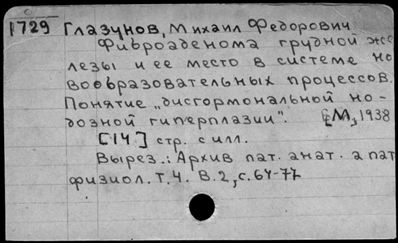 1729 Глазунов, Михаил Федорович
Фиброаденома грудной же
лезы и ее место в системе но
вообразовательных процессов.
Понятие „дисгормональной но-
дозной гиперплазии". [М, 1938
[14] стр. с илл.
Вырез.: Архив пат. анат. а пат
физиол. Т.4. В.2, с. 64-77